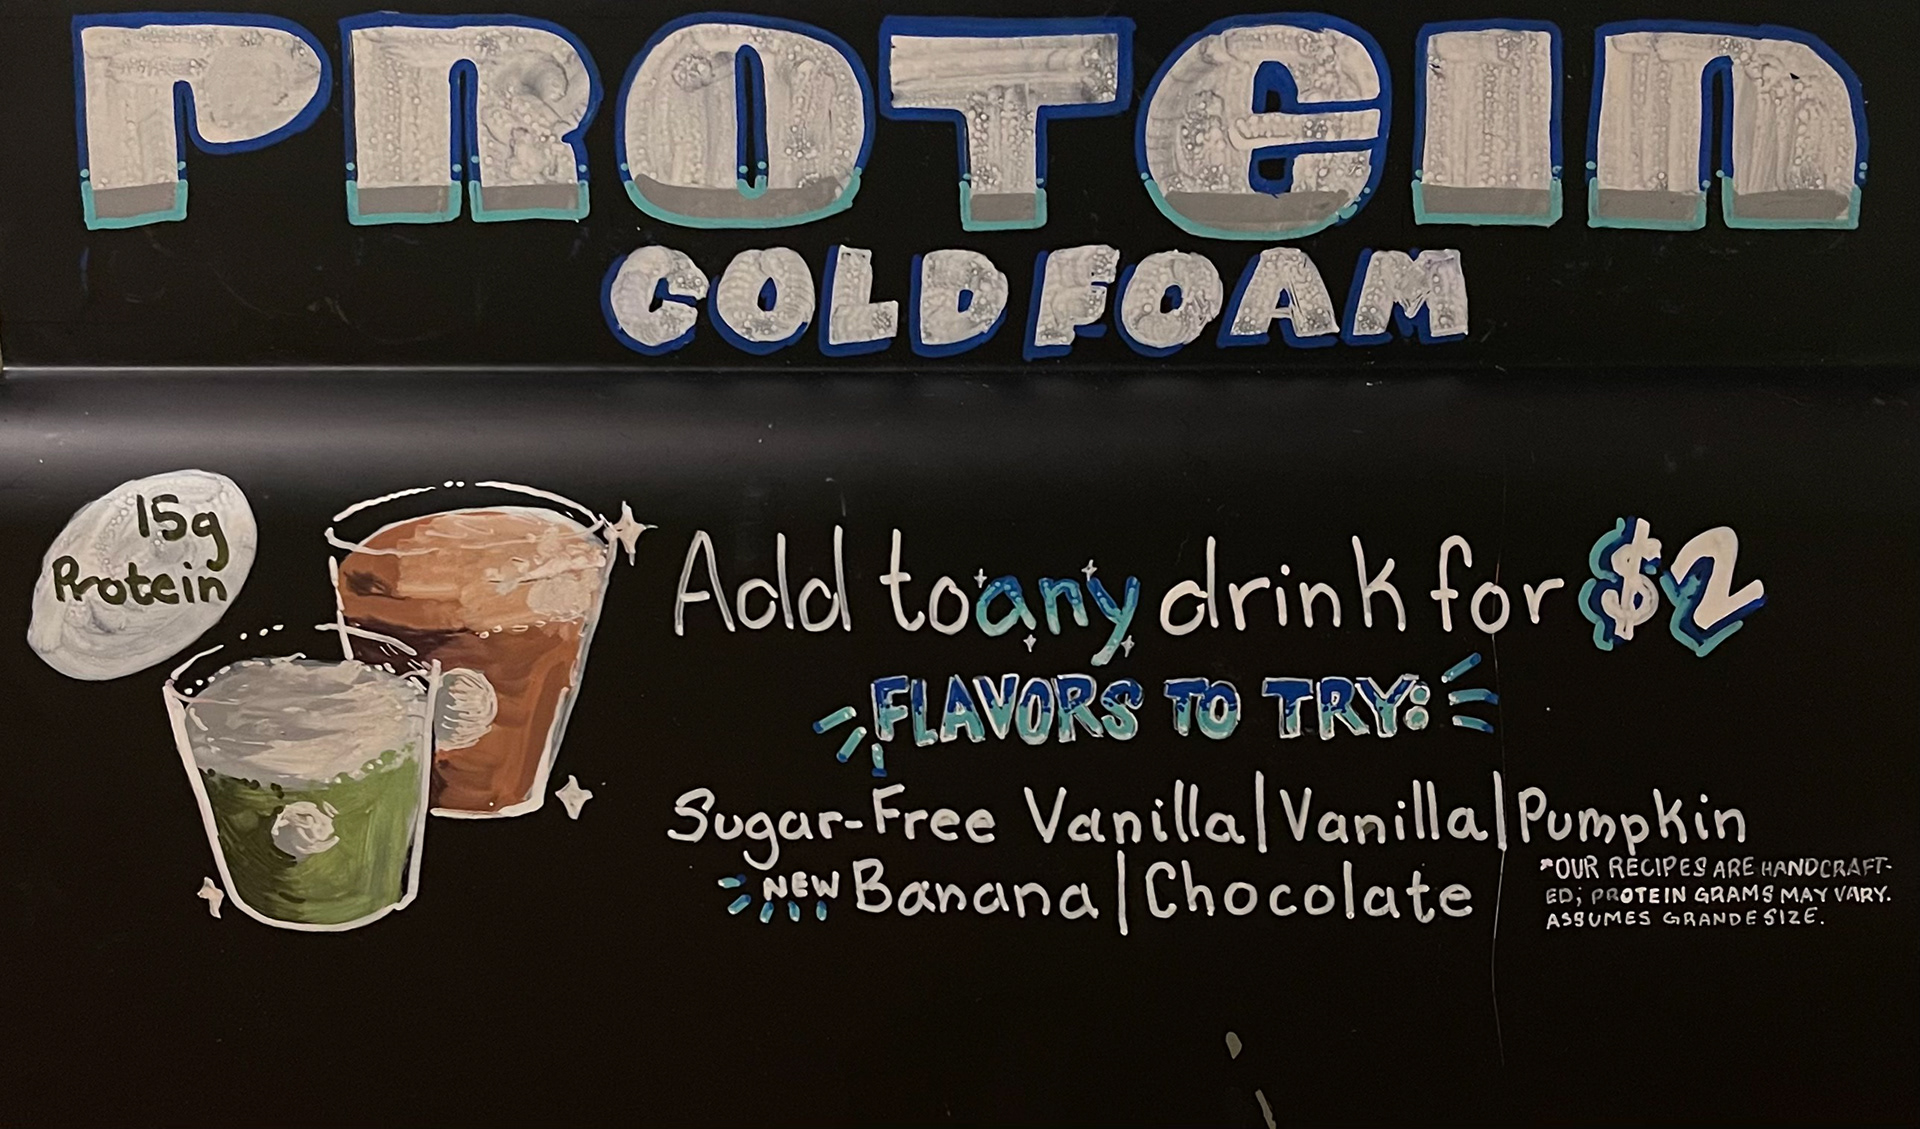 PROTEIN
COLD FOAM
15g
Protein
Add to any drink for $2
FLAVORS TO TRY:
Sugar-Free Vanilla | Vanilla | Pumpkin
NEW Banana | Chocolate
*OUR RECIPES ARE HANDCRAFT-
ED; PROTEIN GRAMS MAY VARY.
ASSUMES GRANDE SIZE.